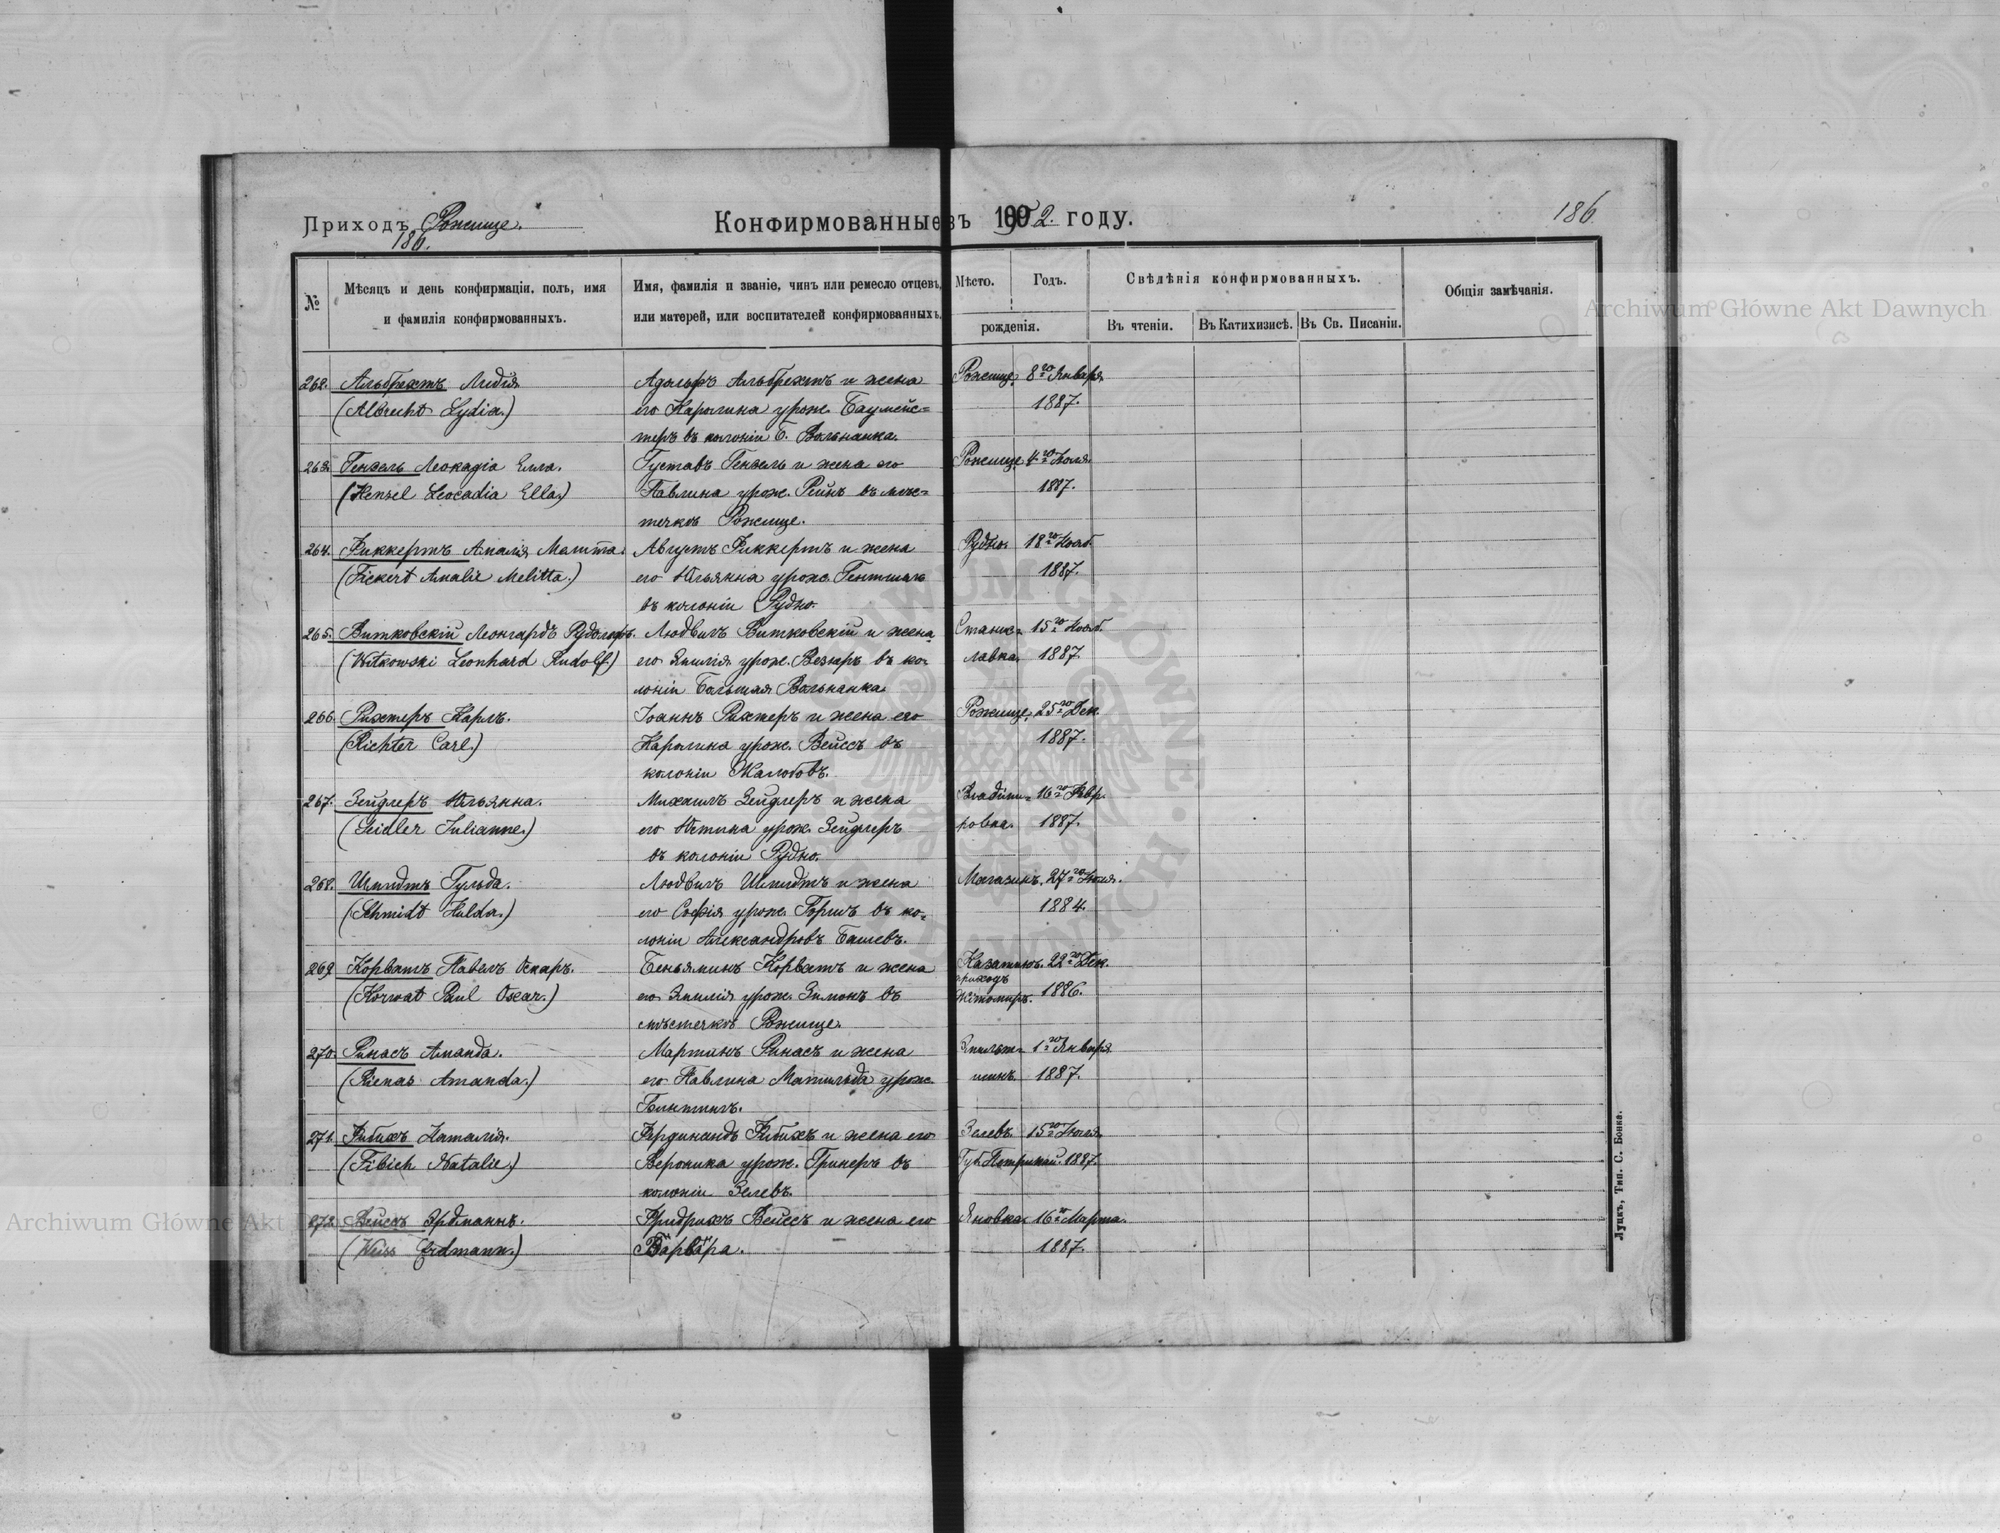 Приходъ Рожище.
186.
Конфирмованные въ 1902. году.
186.
№
Мѣсяцъ и день конфирмаціи, полъ, имя
и фамилія конфирмованныхъ.
Имя, фамилія и званіе, чинъ или ремесло отцевъ,
или матерей, или воспитателей конфирмованныхъ.
Мѣсто. Годъ.
рожденія.
Свѣдѣнія конфирмованныхъ.
Въ чтеніи. Въ Катихизисѣ. Въ Св. Писаніи.
Общія замѣчанія.
Archiwum Główne Akt Dawnych
262. Альбрехтъ Лидія Адольфъ Альбрехтъ и жена Рожище, 8го Января
(Albrecht Lydia.) его Каролина урож. Баумейс= 1887.
теръ въ колоніи Б. Вольнянка.
263. Гензель Леокадія Элла. Густавъ Гензель и жена его Рожище 4го Іюля
(Henzel Leocadia Ella.) Павлина урож. Рейнъ въ мѣс= 1887.
течкѣ Рожище.
264. Фиккертъ Амалія Мелитта. Августъ Фиккертъ и жена Рудно. 18го Нояб.
(Fickert Amalie Melitta.) его Юльянна урож. Гентшель 1887.
въ колоніи Рудно.
265. Витковскій Леонгардъ Рудольфъ. Людвигъ Витковскій и жена Станис= 15го Нояб.
(Witkowski Leonhard Rudolf) его Эмилія урож. Везнеръ въ ко= лавка. 1887.
лоніи Большая Вольнянка.
266. Рихтеръ Карлъ. Іоаннъ Рихтеръ и жена его Рожище, 25го Дек.
(Richter Carl.) Каролина урож. Вейссъ въ 1887.
колоніи Жалобовъ.
267. Зейдлеръ Юльянна. Михаилъ Зейдлеръ и жена Владими= 16го Февр.
(Seidler Julianne.) его Юстина урож. Зейдлеръ ровка. 1887.
въ колоніи Рудно.
268. Шмидтъ Гульда. Людвигъ Шмидтъ и жена Магазинъ. 27го Іюля.
(Schmidt Hulda.) его Софія урож. въ ко= 1884.
лоніи Александровъ Башевъ.
269. Корватъ Павелъ Оскаръ. Беньяминъ Корватъ и жена Казатинъ. 22го Дек.
приходъ
(Korwat Paul Oscar.) его Эмилія урож. Зимонъ въ Житомиръ. 1886.
мѣстечкѣ Рожище.
270. Ринасъ Аманда. Мартинъ Ринасъ и жена 1го Января
(Rienas Amanda.) его Павлина Матильда урож. 1887.
271. Фибихъ Наталія. Фердинандъ Фибихъ и жена его Зелевъ. 15го Іюля
(Fibich Natalie.) Вероника урож. Гринеръ въ Губ. 1887.
колоніи Зелевъ.
272. Вейссъ Эрдманнъ. Фридрихъ Вейссъ и жена его Яновка. 16го Марта.
(Weiss Erdmann.) Варвара. 1887.
Луцкъ, Тип. С. Бонка.
Archiwum Główne Akt Dawnych
ARCHIWUM GŁÓWNE AKT DAWNYCH